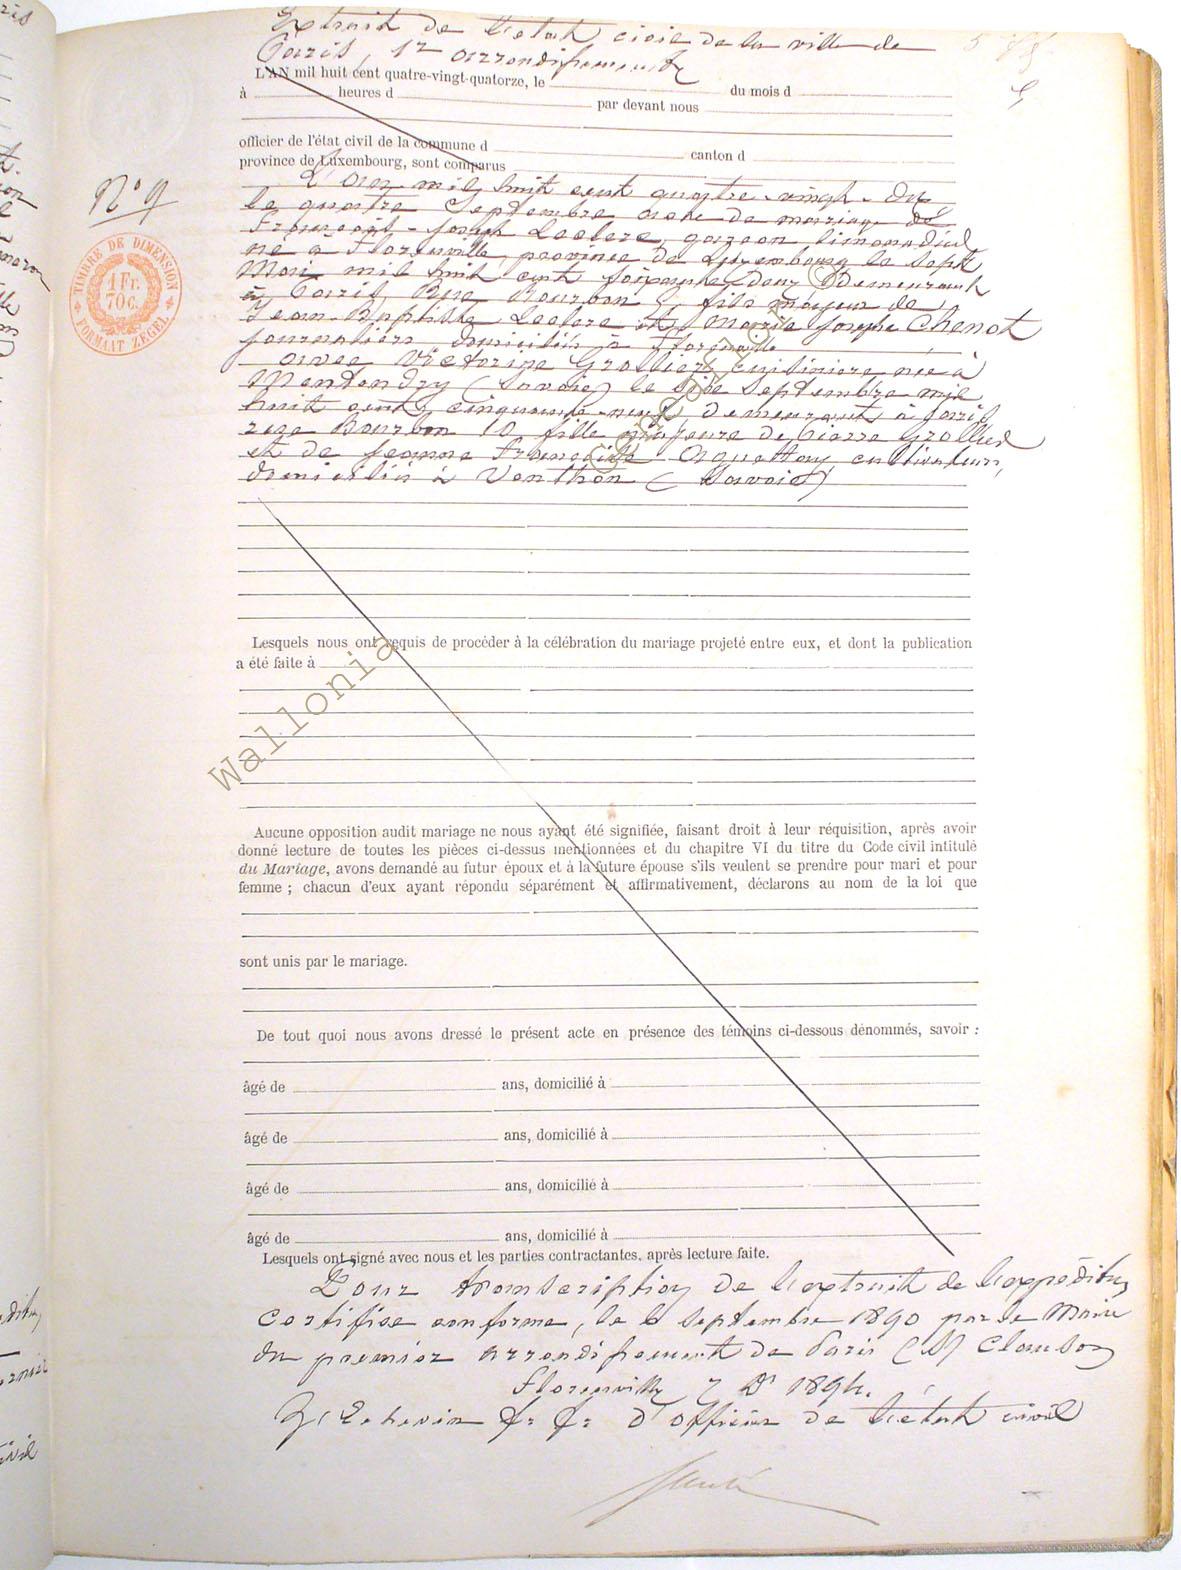 Extrait de l'état civil de la ville de
Paris, 1er arrondissement
L'AN mil huit cent quatre-vingt-quatorze, le du mois d
à heures d par devant nous
officier de l'état civil de la commune d canton d
province de Luxembourg, sont comparus
N° 9
TIMBRE DE DIMENSION
1 Fr.
70 c.
FORMAAT ZEGEL
L'an mil huit cent quatre-vingt-dix
le quatre Septembre acte de mariage de
François-Joseph Leclerc, garçon limonadier
né à Florenville, province de Luxembourg le sept
Mai mil huit cent soixante deux Demeurant
à Paris, Rue Bourbon fils majeur de
Jean-Baptiste Leclere et Marie Josephe Chenot
journaliers domiciliés à Florenville
avec Victorine Grollier, cuisinière née à
(Savoie) le Septembre mil
huit cent cinquante-neuf, demeurant à Paris
rue Bourbon 10 fille majeure de Pierre Grollier
et de Jeanne Françoise cultivateurs,
domiciliés à Venthon (Savoie)
Geneanet
Wallonia
Lesquels nous ont requis de procéder à la célébration du mariage projeté entre eux, et dont la publication
a été faite à
Aucune opposition audit mariage ne nous ayant été signifiée, faisant droit à leur réquisition, après avoir
donné lecture de toutes les pièces ci-dessus mentionnées et du chapitre VI du titre du Code civil intitulé
du Mariage, avons demandé au futur époux et à la future épouse s'ils veulent se prendre pour mari et pour
femme ; chacun d'eux ayant répondu séparément et affirmativement, déclarons au nom de la loi que
sont unis par le mariage.
De tout quoi nous avons dressé le présent acte en présence des témoins ci-dessous dénommés, savoir :
âgé de ans, domicilié à
âgé de ans, domicilié à
âgé de ans, domicilié à
âgé de ans, domicilié à
Lesquels ont signé avec nous et les parties contractantes, après lecture faite.
Pour transcription de l'extrait de l'expédition
certifiée conforme, le 6 septembre 1890 par le Maire
du premier arrondissement de Paris (S)
Florenville 7 1894.
L'Echevin f. f. d'officier de l'état civil